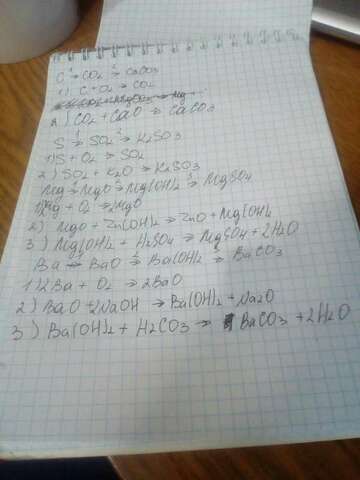 C →¹ CO₂ →² CaCO₃
1) C + O₂ → CO₂
2) CO₂ + CaO → CaCO₃
S →¹ SO₂ →² K₂SO₃
1) S + O₂ → SO₂
2) SO₂ + K₂O → K₂SO₃
Mg →¹ MgO →² Mg(OH)₂ →³ MgSO₄
1) 2Mg + O₂ → 2MgO
2) MgO + Zn(OH)₂ → ZnO + Mg(OH)₂
3) Mg(OH)₂ + H₂SO₄ → MgSO₄ + 2H₂O
Ba → BaO →² Ba(OH)₂ →³ BaCO₃
1) 2Ba + O₂ → 2BaO
2) BaO + 2NaOH → Ba(OH)₂ + Na₂O
3) Ba(OH)₂ + H₂CO₃ → BaCO₃ + 2H₂O